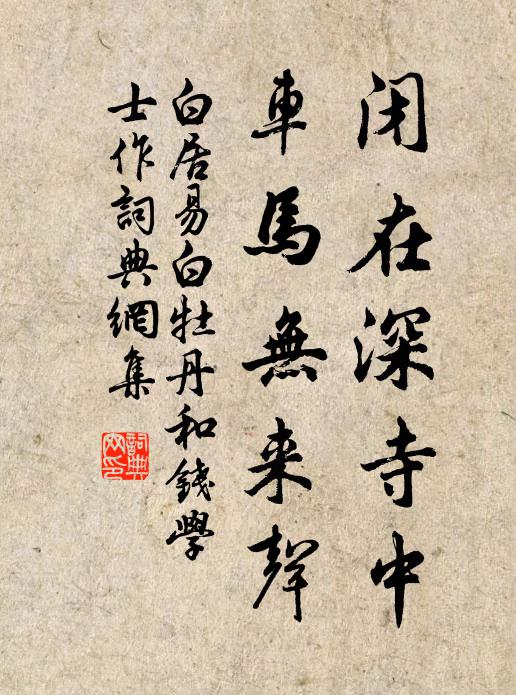 闭在深寺中
車馬無来聲
白居易白牡丹和錢學
士作詞典網集
詞典
网印